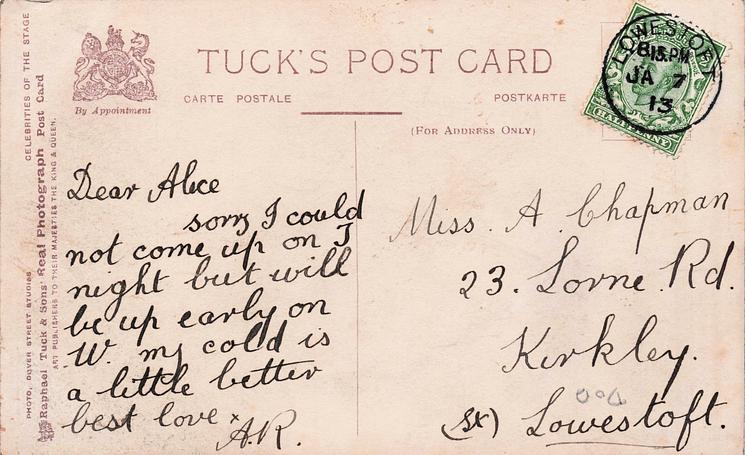 TUCK'S POST CARD
By Appointment
CARTE POSTALE
POSTKARTE
(FOR ADDRESS ONLY)
CELEBRITIES OF THE STAGE
PHOTO, DOVER STREET STUDIOS
Raphael Tuck & Sons' Real Photograph Post Card
ART PUBLISHERS TO THEIR MAJESTIES THE KING & QUEEN.
LOWESTOFT
8.15 PM
JA 7
13
HALFPENNY
Dear Alice
sorry I could
not come up on T
night but will
be up early on
W. my cold is
a little better
best love x
A.R.
Miss. A. Chapman
23. Lorne Rd.
Kirkley.
(sx) Lowestoft.